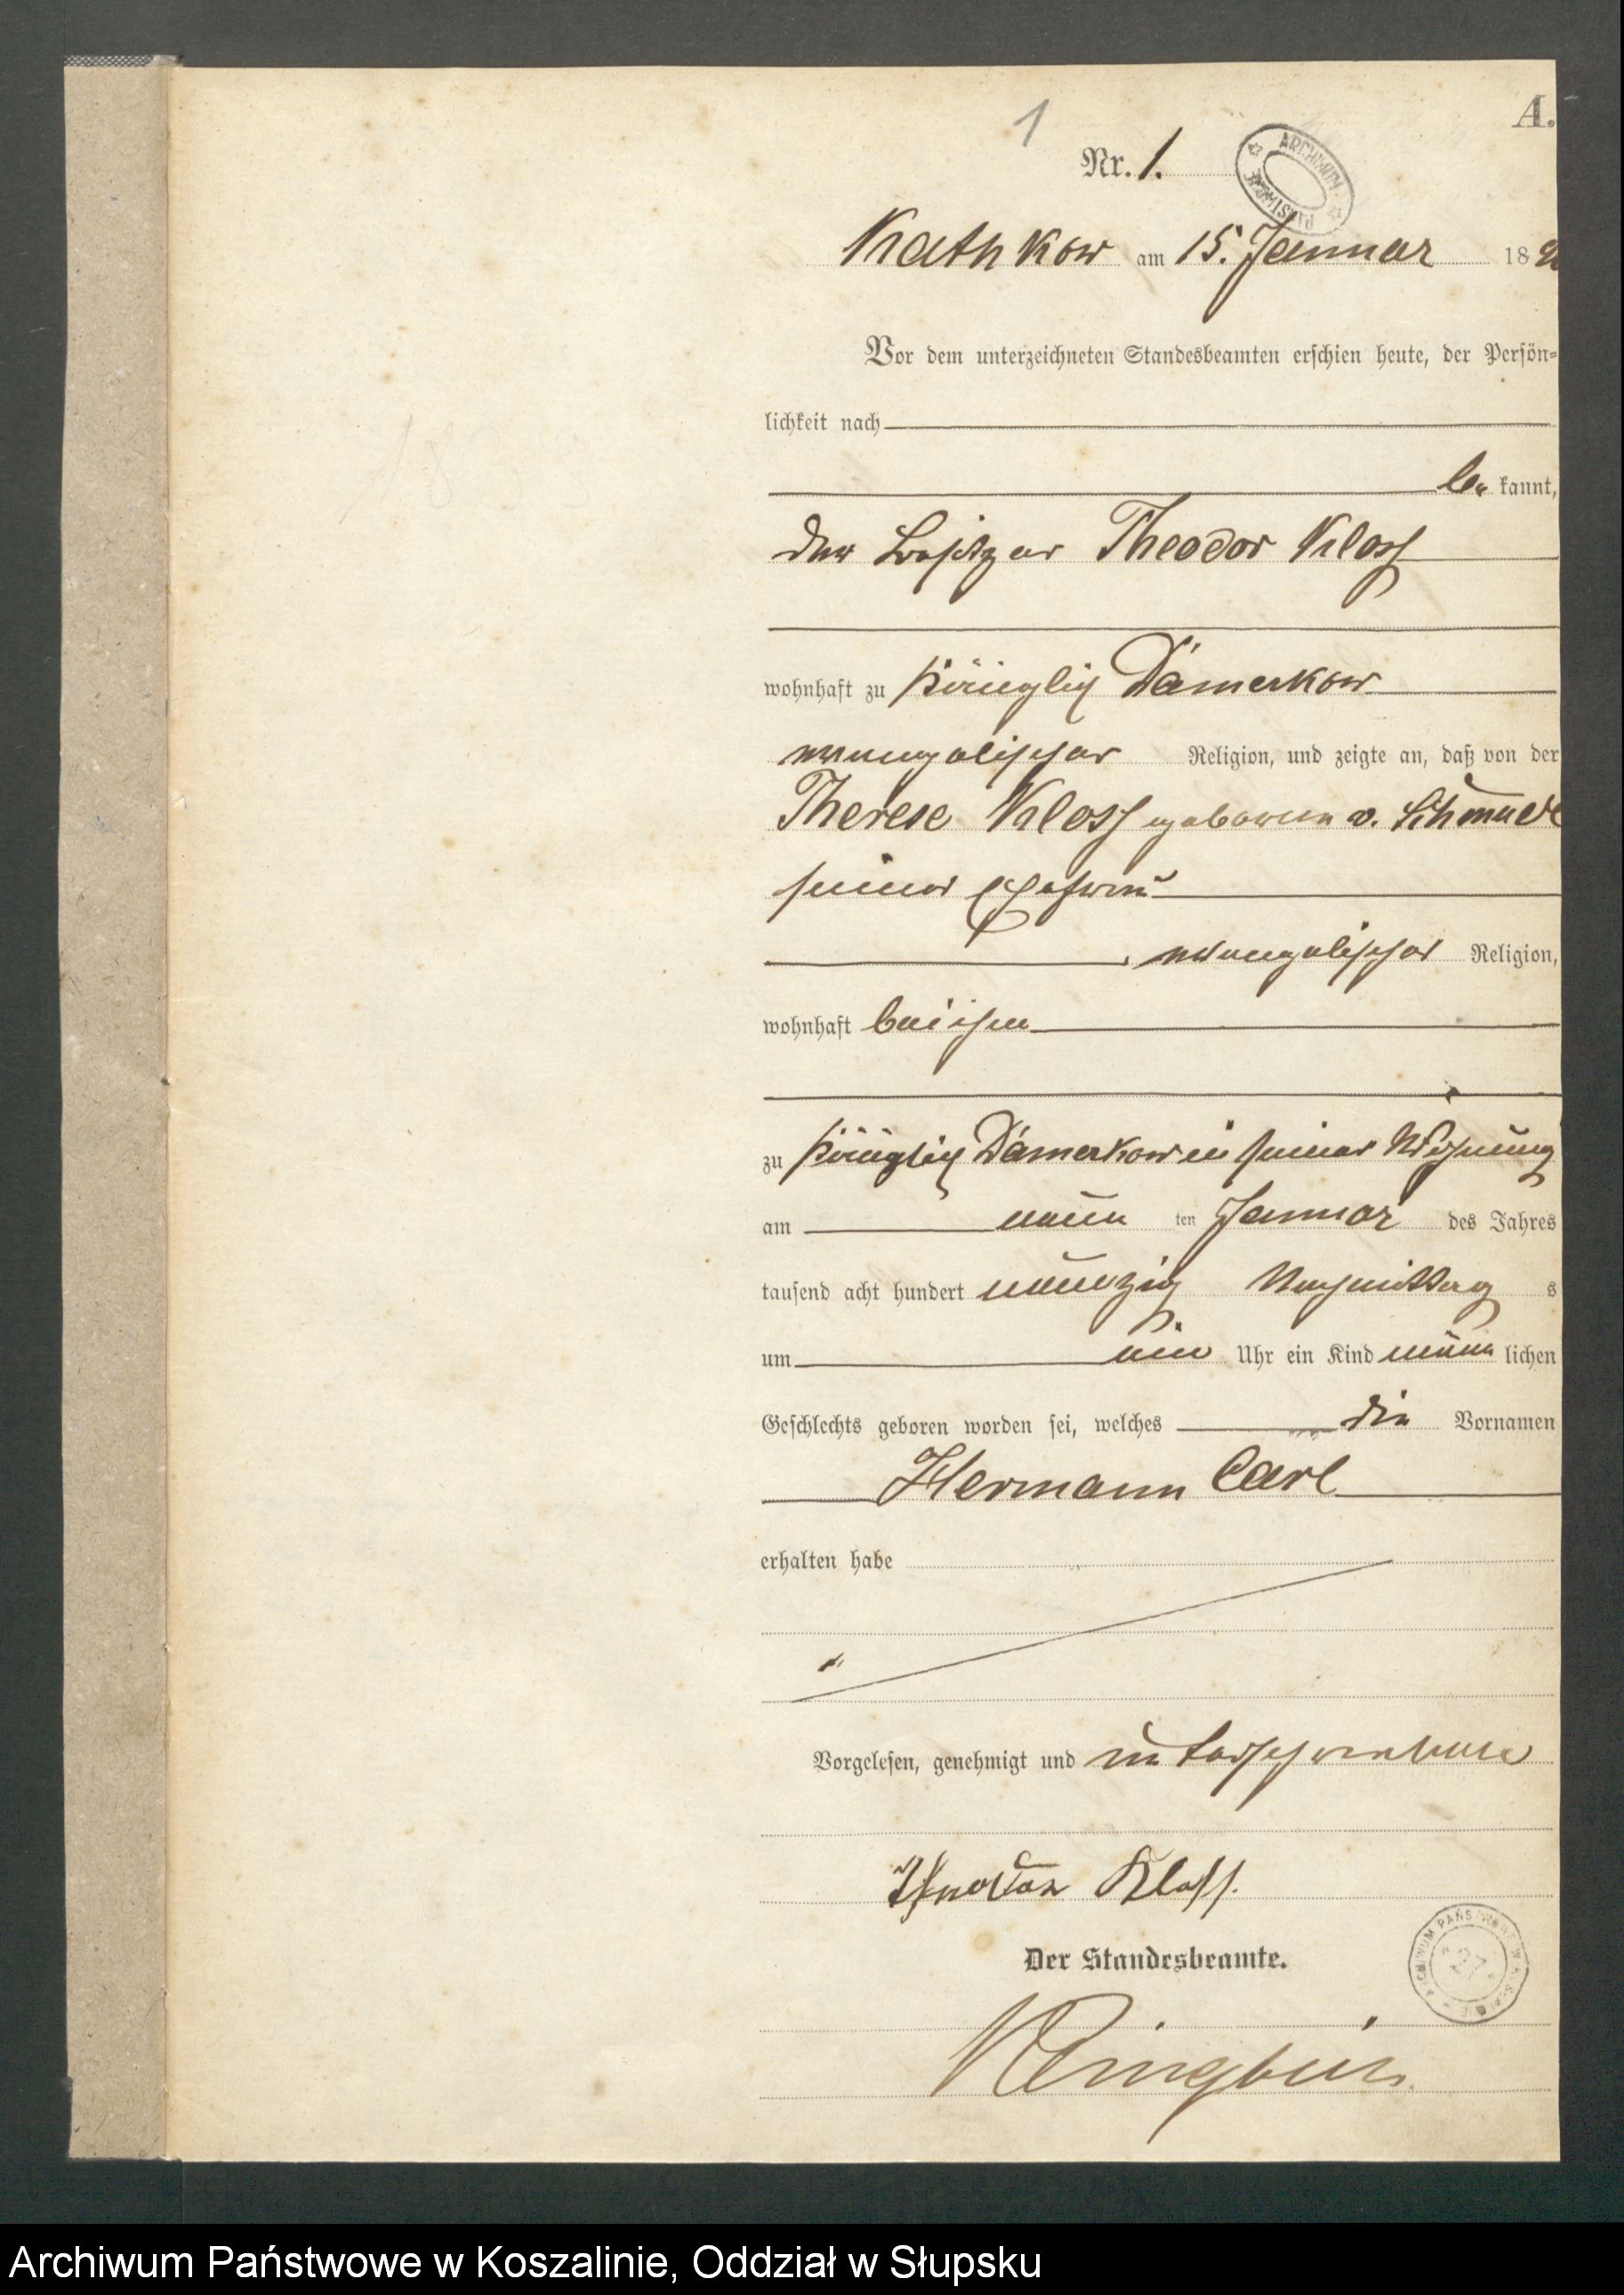 A.
1
Nr. 1.
ARCHIWUM PAŃSTWOWE
Kathkow am 15. Januar 189
Vor dem unterzeichneten Standesbeamten erschien heute, der Persön-
lichkeit nach
be kannt,
der Besitzer Theodor Kloss
wohnhaft zu Königlich Dämerkow
evangelischer Religion, und zeigte an, daß von der
Therese Kloss geborene v. Schmude
seiner Ehefrau
, evangelischer Religion,
wohnhaft bei ihm
zu Königlich Dämerkow in seiner Wohnung
am neun ten Januar des Jahres
tausend acht hundert neunzig Nachmittag s
um ein Uhr ein Kind männ lichen
Geschlechts geboren worden sei, welches die Vornamen
Hermann Carl
erhalten habe
Vorgelesen, genehmigt und unterschrieben
Theodor Kloss.
Der Standesbeamte.
Archiwum Państwowe w Koszalinie, Oddział w Słupsku